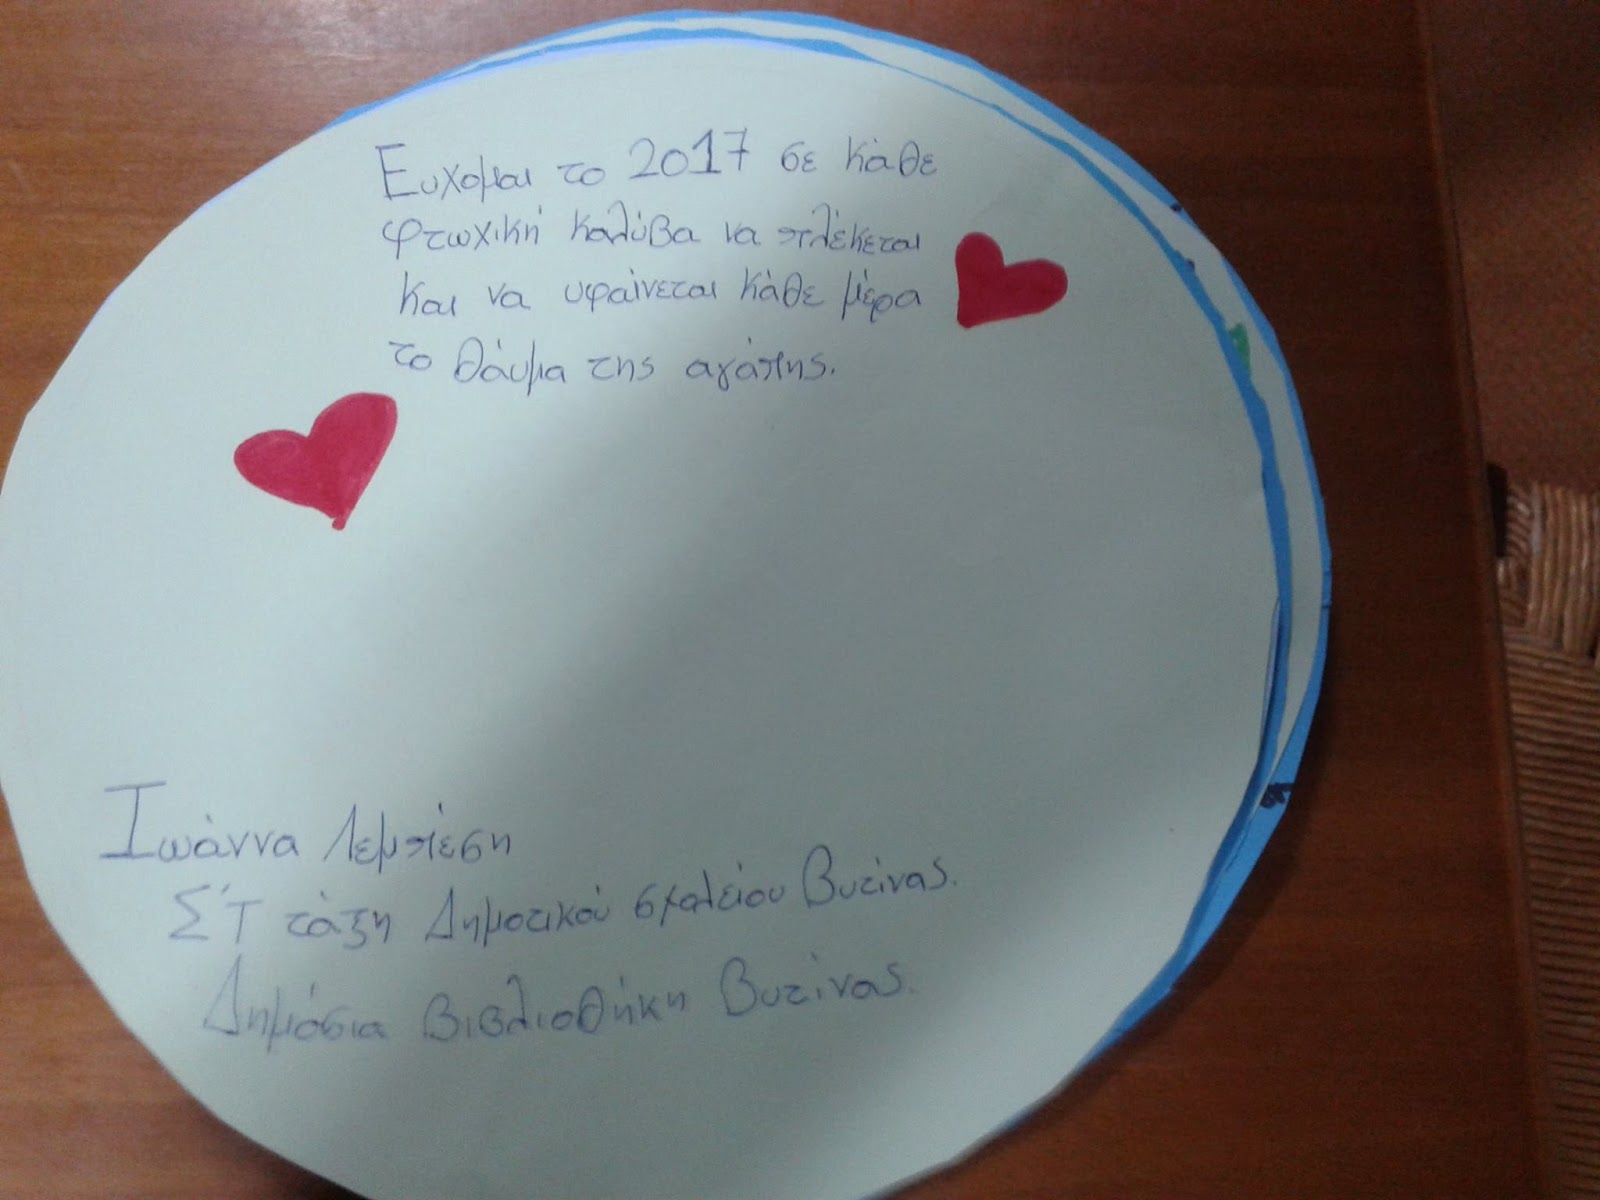 Ευχομαι το 2017 σε κάθε
φτωχική καλύβα να πλέκεται
και να υφαίνεται κάθε μέρα
το θάυμα της αγάπης.
Ιωάννα Λεμπέση
Σ'Τ τάξη Δημοτικού σχολείου Βυτίνας.
Δημόσια Βιβλιοθήκη Βυτίνας.